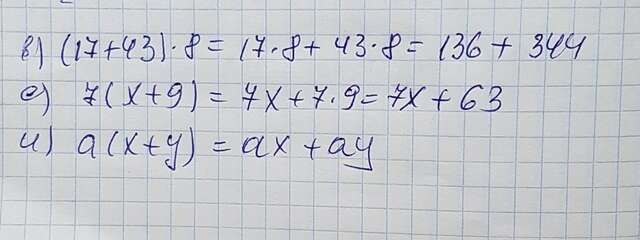 в) (17+43)·8 = 17·8 + 43·8 = 136 + 344
е) 7(x+9) = 7x + 7·9 = 7x + 63
и) a(x+y) = ax + ay